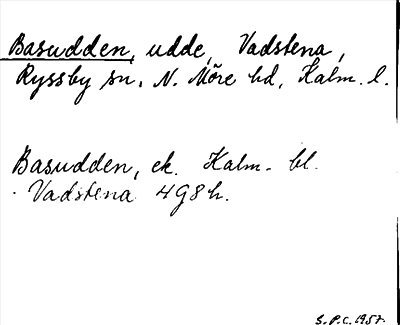 Basudden, udde, Vadstena,
Ryssby sn, N. Möre hd, Kalm. l.
Basudden, ek. Kalm. bl.
Vadstena 4 G 8 h.
S.P.C. 1957.